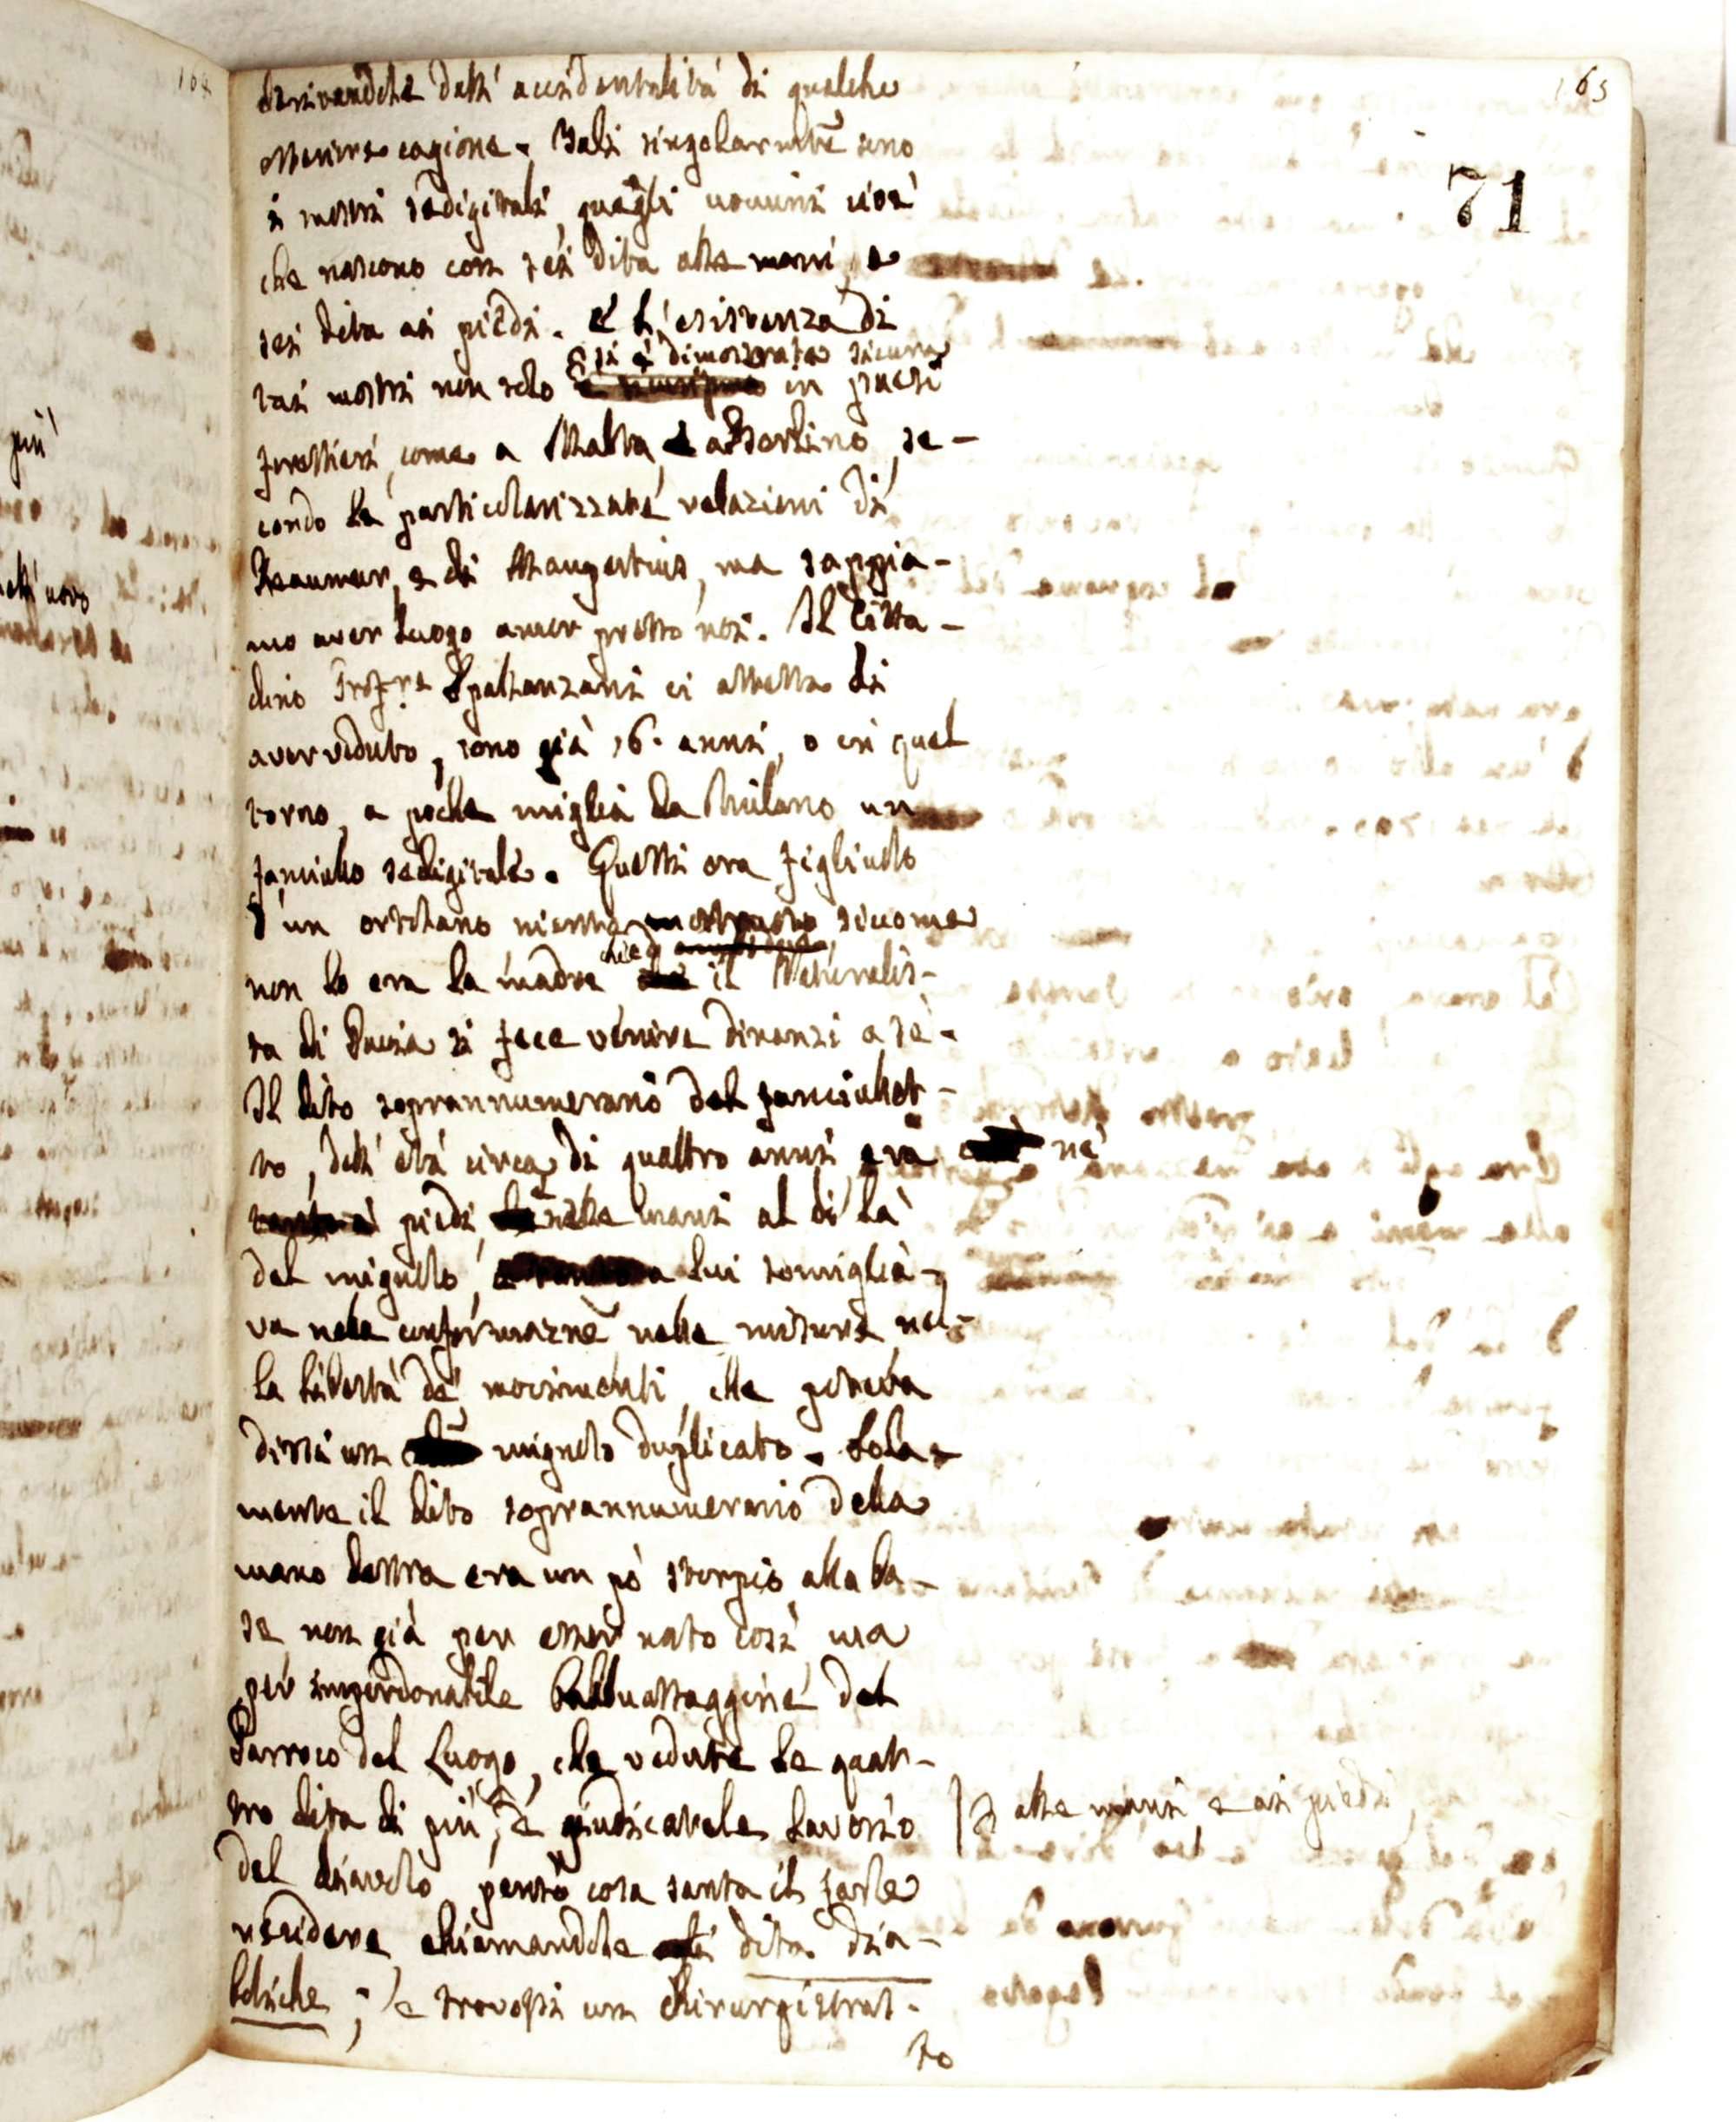 165
71
derivandole dall' accidentalità di qualche
esteriore cagione. Tali singolarmte sono
i mostri sedigitali, quegli uomini cioè
che nascono con sei dita alle mani, e
sei dita ai piedi. E l'esistenza di
si è dimostrata sicura
tai mostri non solo in paesi
forestieri, come a Malta, e a Berlino, se-
condo le particolarizzate relazioni di
Reaumur, e di Maupertuis, ma sappia-
mo aver luogo anche presso noi. Il Citta-
dino Profre Spallanzani ci attesta di
aver veduto, sono già 16. anni, o in quel
torno, a poche miglia da Milano un
fanciullo sedigitale. Questi era figliuolo
d'un ortolano niente mostruoso siccome
non lo era la madre che il Naturalis-
ta di Pavia si fece venire dinanzi a se.
Il dito soprannumerario del fanciullet-
to, dell' età circa di quattro anni, era né
piedi, e nelle mani al di là
del mignolo, a lui somiglia-
va nella conformazne nelle misure, nel-
la libertà de' movimenti, che poteva
dirsi un mignolo duplicato. Sola-
mente il dito soprannumerario della
mano destra era un pò storpio alla ba-
se non già per esser nato così ma
per imperdonabile balordaggine del
Parroco del Luogo, che vedute le quat-
tro dita di più, e giudicatele lavorio
alle mani, e ai piedi,
del diavolo pensò cosa santa il farle
recidere, chiamandole dita dia-
boliche; e trovossi un chirurgistrat-
to
più
dell' uovo